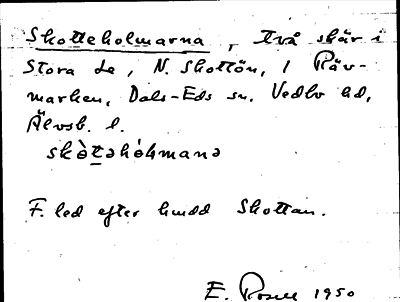 Skotteholmarna, två skär i
Stora Le, N. Skottön, i Räv-
marken, Dals-Eds sn. Vedbo hd,
Älvsb. l.
skòtəhólmanə
F. led efter hudd Skottan.
E. Rosell 1950